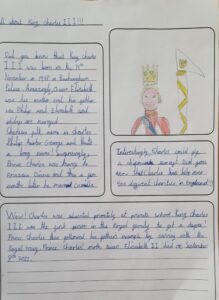 All about King Charles III!!!
Did you know that King Charles
III was born on the 14th
November in 1948 in Buckingham
Palace. Amazingly, Queen Elizabeth
was his mother and his father
was Philip and Elizabeth and
philip got married.
Charles's full name is Charles
Philip Arthur George and that's
a long name! Surprisingly,
Prince Charles was engaged to
Princess Diana and then a few
months later he married
Interestingly, Charles could fly a
several times
That Charles has been over
100 different churches in England!
Wow! Charles was educated privately at private school. King Charles
III was the first person in the Royal family to get a degree!
Prince Charles then followed his father's example by serving with the
Royal navy. Prince Charles' mother Queen Elizabeth II died on September
8th 2022.